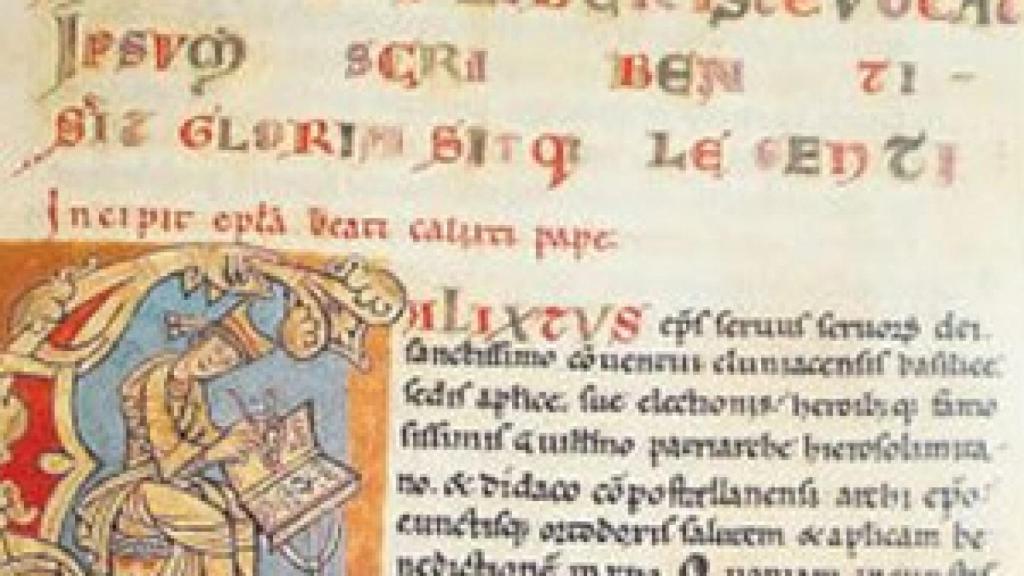 IPSVM SCRIBENTI
SIT GLORIA SITQ LEGENTI
Incipit epła beati calixti pape.
ALIXTVS ep̄s seruus seruoꝝ dei.
sanctissimo cōuentui cluniacensis basilice.
sedis aplice. sue electionis, heroibꝰqꝫ famo
sissimis Guillmo patriarche hierosolimita-
no. & didaco cōpostellanensi archiepo.
cunctisqꝫ ortodoxis salutem & aplicam be
nedictionē in xp̄o. Quoniam in cunctis